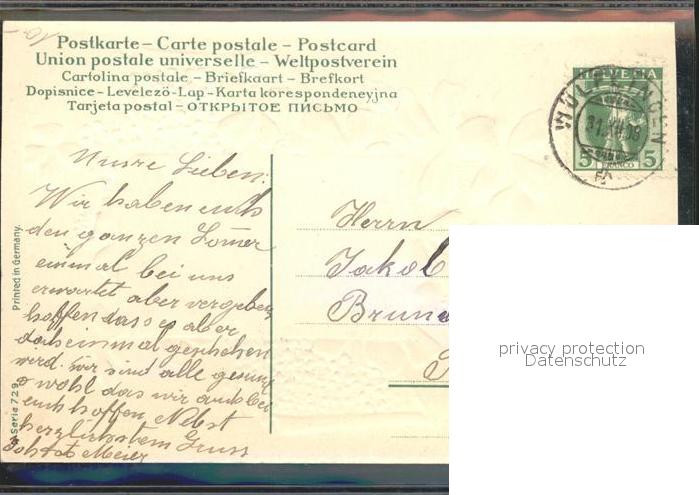 Postkarte – Carte postale – Postcard
Union postale universelle – Weltpostverein
Cartolina postale – Briefkaart – Brefkort
Dopisnice – Levelező-Lap – Karta korespondeneyjna
Tarjeta postal – ОТКРЫТОЕ ПИСЬМО
HELVETIA
5 5
FRANCO
31.XII.09
Unsre Lieben:
Wir haben euch
den ganzen Somer
einmal bei uns
erwartet aber vergebens
hoffen dass es aber
doch einmal geschehen
wird. wir sind alle gesund
wohl das wir auch bei
euch hoffen Nebst
herzlichstem Gruss
Meier
Herrn
Jakob
Printed in Germany.
Serie 729
privacy protection
Datenschutz